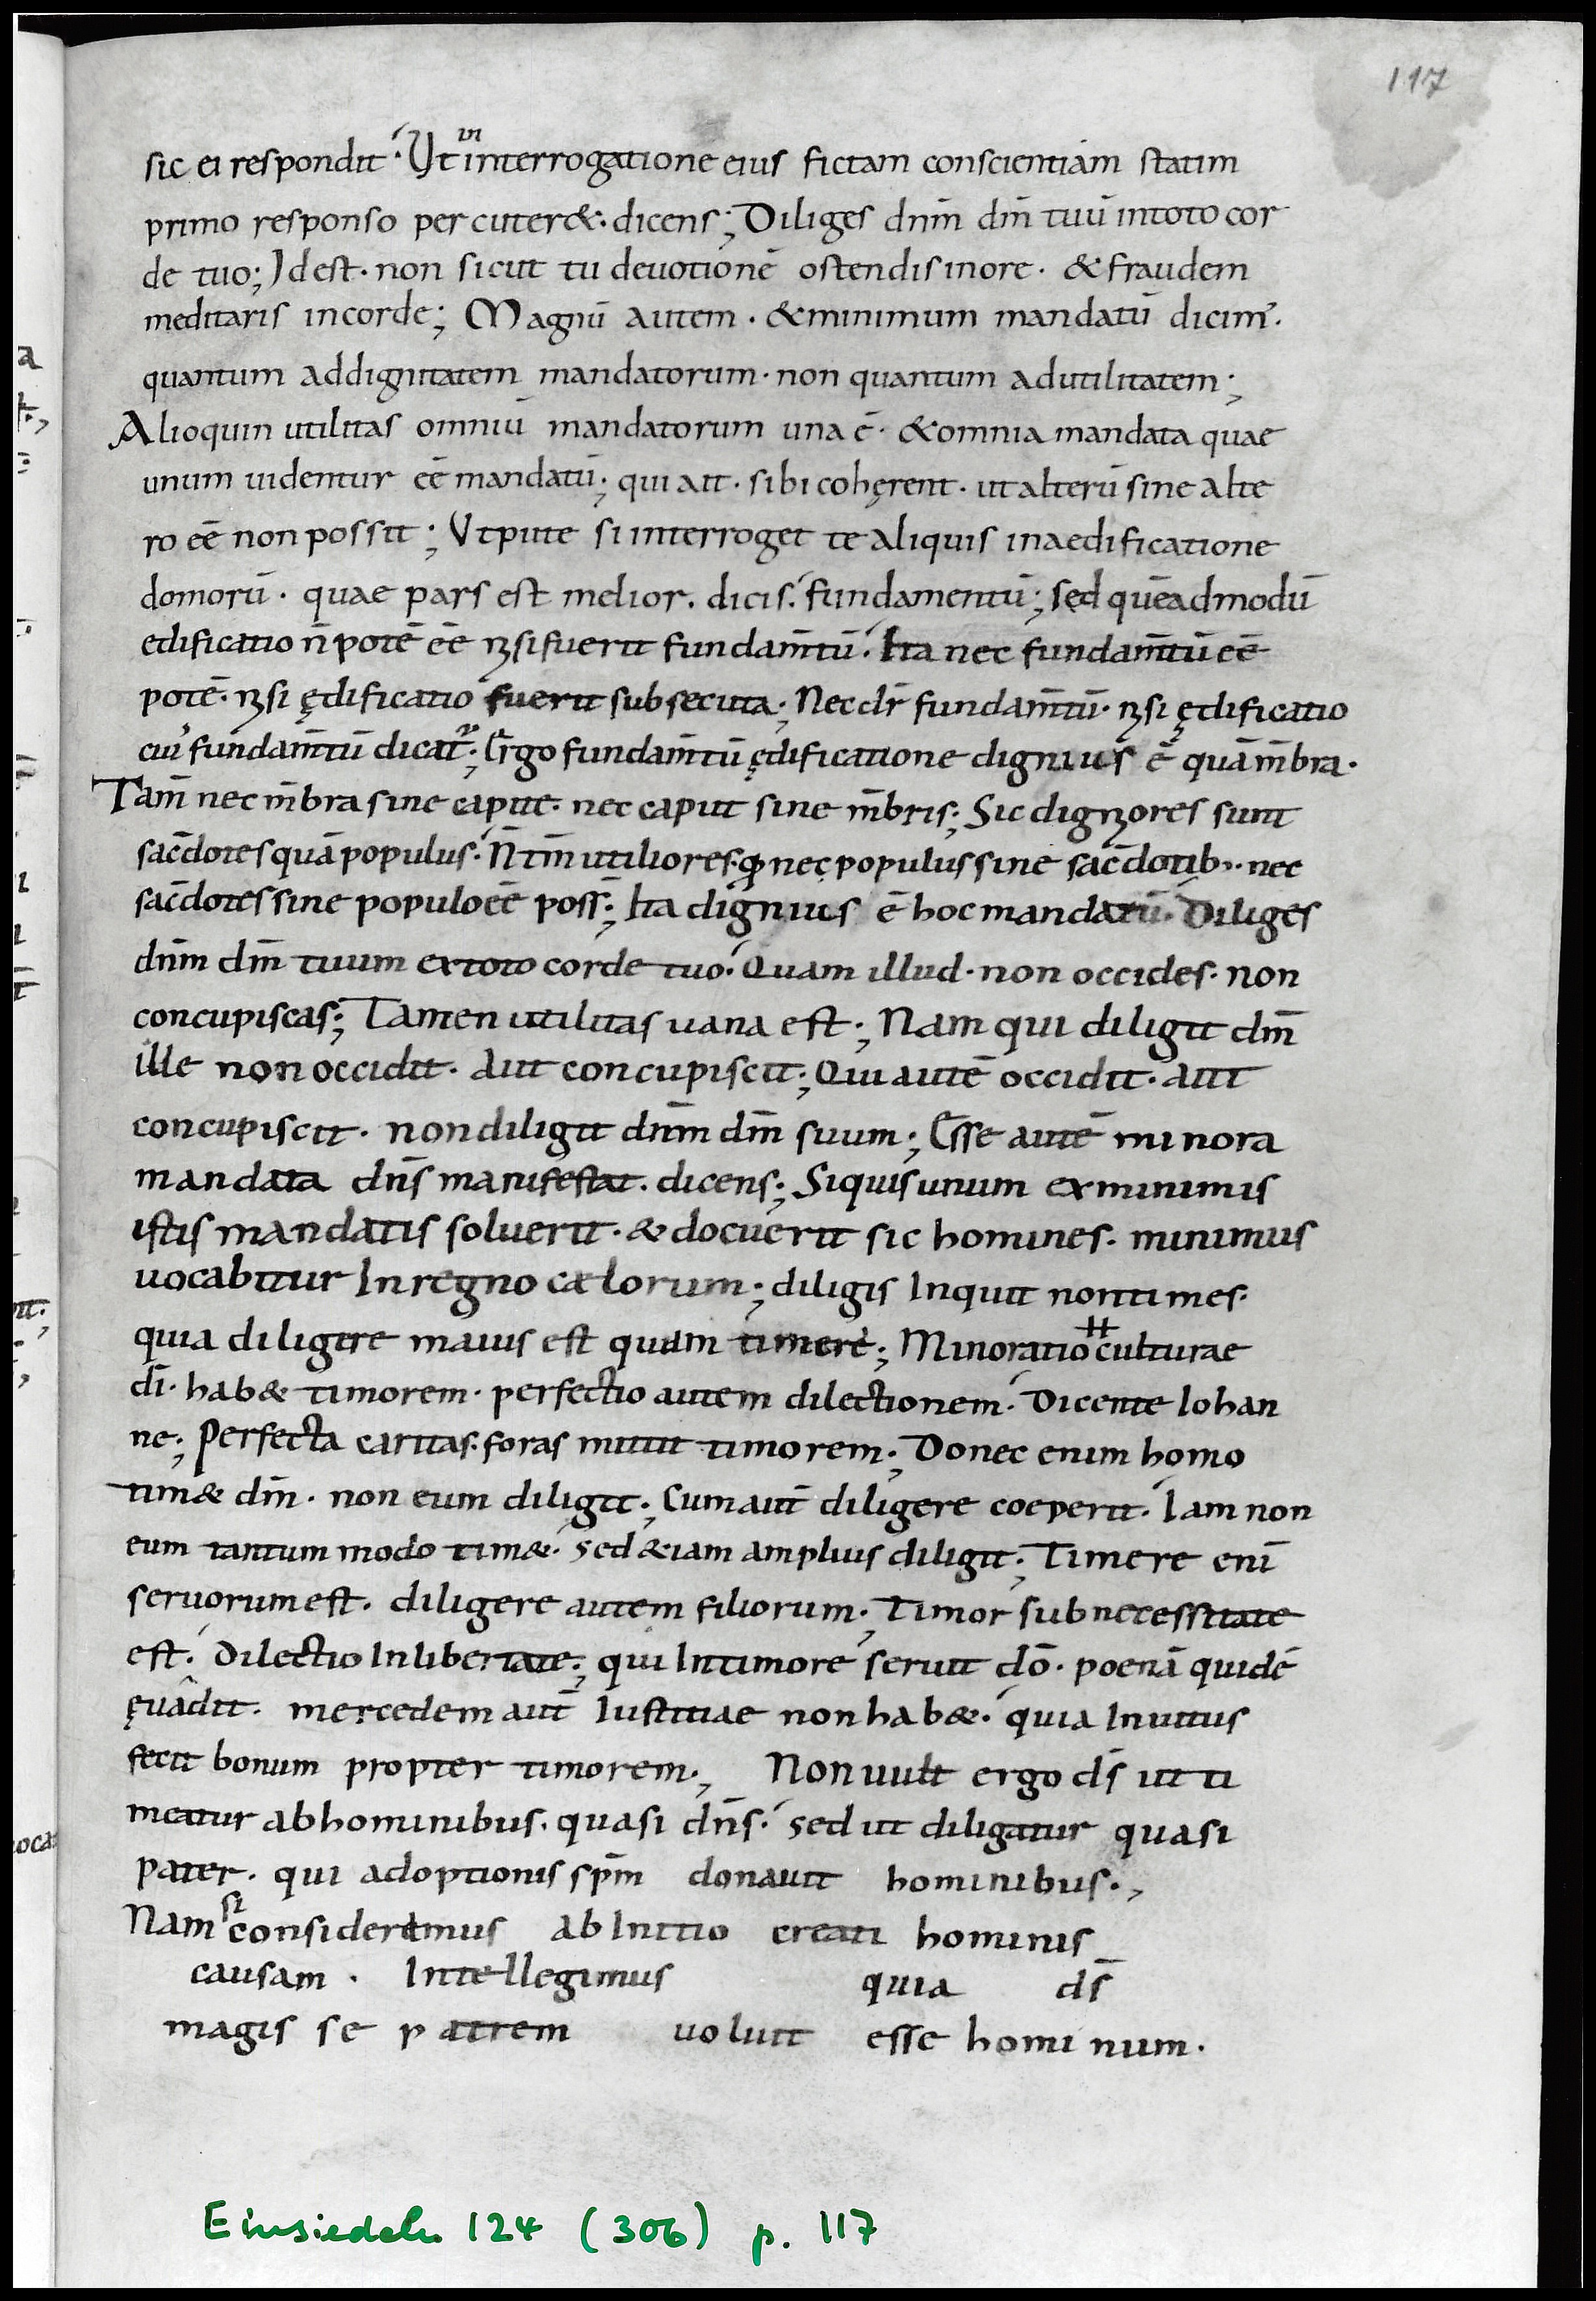 117
sic ei respondit. Ut in interrogatione eius fictam conscientiam statim
primo responso percuter&. dicens; Diliges dnm̄ dm̄ tuū intoto cor
de tuo; Idest. non sicut tu deuotionē ostendis inore. & fraudem
meditaris incorde; Magnū autem. &minimum mandatū dicim̃.
quantum addignitatem mandatorum. non quantum adutilitatem;
Alioquin utilitas omniū mandatorum una ē. &omnia mandata quae
unum uidentur eē mandatū; qui att. sibi cohęrent. ut alterū sine alte
ro eē non possit; Utpute si interroget te aliquis inaedificatione
domorū. quae pars est melior. dicis. fundamentū; sed quēadmodū
edificatio n̄ potē eē nisi fuerit fundam̄tū. Ita nec fundam̄tū eē
potē. nisi ędificatio fuerit subsecuta; Nec dr̄ fundam̄tū. nisi ędificatio
cui' fundam̄tū dicat̃; Ergo fundam̄tū ędificatione dignius ē quā m̄bra.
Tam̄ nec m̄bra sine capite. nec caput sine m̄bris; Sic digniores sunt
sac̄dotes quā populus. N̄ tm̄ utiliores. qđ nec populus sine sac̄dotib;. nec
sac̄dotes sine populo eē poss̄; Ita dignius ē hoc mandatū. Diliges
dnm̄ dm̄ tuum extoto corde tuo. Quam illud. non occides. non
concupiscas; Tamen utilitas uana est; Nam qui diligit dm̄
ille non occidit. Aut concupiscit; Qui autē occidit. aut
concupiscit. non diligit dnm̄ dm̄ suum; Esse autē minora
mandata dn̄s manifestat. dicens; Siquis unum exminimis
istis mandatis soluerit. & docuerit sic homines. minimus
uocabitur Inregno cælorum; diligis Inquit nontimes.
quia diligere maius est quam timere; Minoratio culturae
dī. hab& timorem. perfectio autem dilectionem. Dicente Iohan
ne; Perfecta caritas. foras mittit timorem; Donec enim homo
tim& dm̄. non eum diligit; Cum aut̄ diligere coeperit. Iam non
eum tantummodo tim&. sed &iam amplius diligit; Timere enī
seruorum est. diligere autem filiorum; Timor sub necessitate
est. Dilectio Inlibertate; qui Intimore seruit dō. poenā quidē
ęuâdit. mercedem aut̄ Iustitiae non hab&. quia Inuitus
fecit bonum propter timorem; Non uult ergo ds̄ ut ti
meatur abhominibus. quasi dn̄s. sed ut diligatur quasi
pater. qui adoptionis sp̄m donauit hominibus.,
Nam si consideremus ab Initio creati hominis
causam. Intellegimus quia ds̄
magis se patrem uoluit esse hominum.
Einsiedeln 124 (306) p. 117